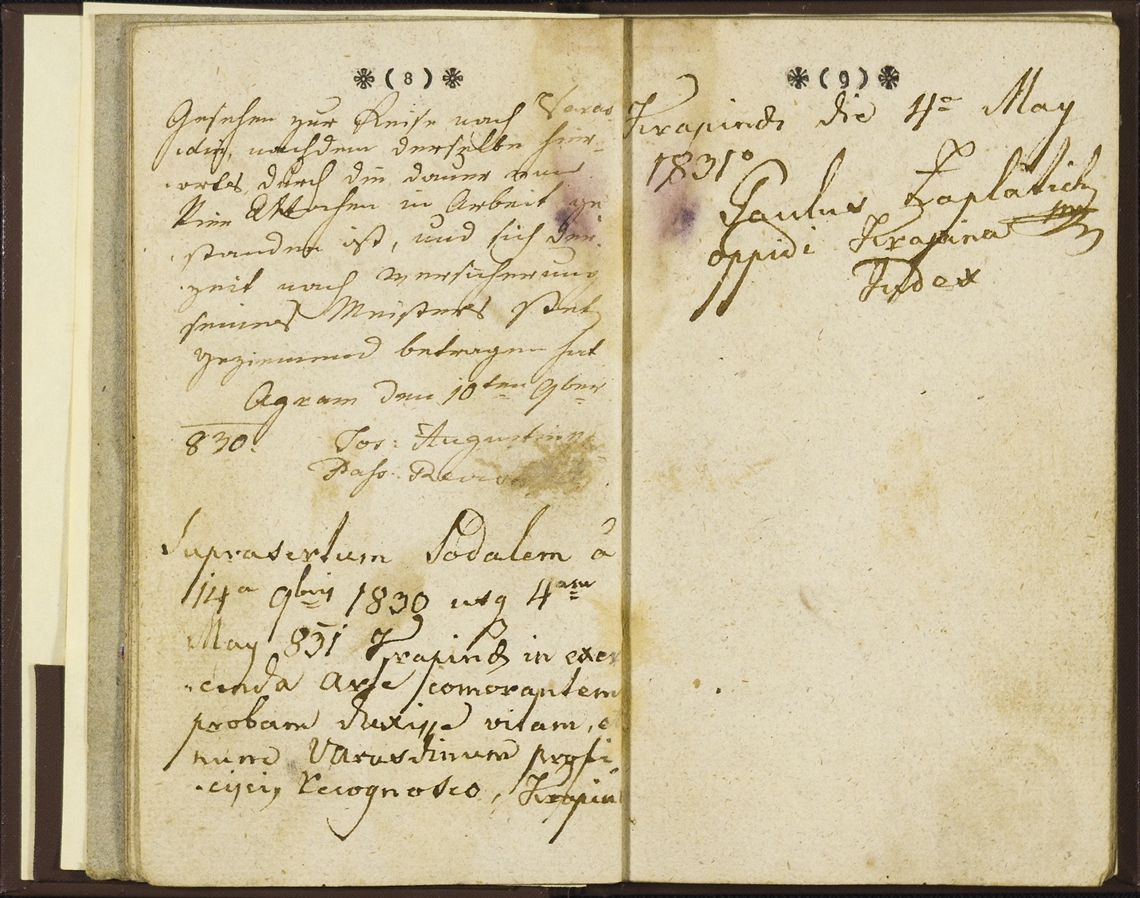 ( 8 )
Gesehen zur Reise nach Waras
din, nachdem derselbe hier-
orts durch die dauer von
Wochen in Arbeit ge
standen ist, und sich der
zeit nach Versicherung
seines Meisters stets
geziemend betragen hat
Agram den 10ten 9ber
830.
Jos: Augustin
Pass: Revis
Suprasertum Sodalem à
14a 9bris 1830 usq 4am
May 831 Krapinæ in exer
cenda Arte comorantem
probam duxisse vitam, e
nunc Varasdinum profi
cisci Recognosco, Krapin
( 9 )
Krapinæ die 4a May
1831o
Paulus Zaplatich mp
oppidi Krapina
Judex